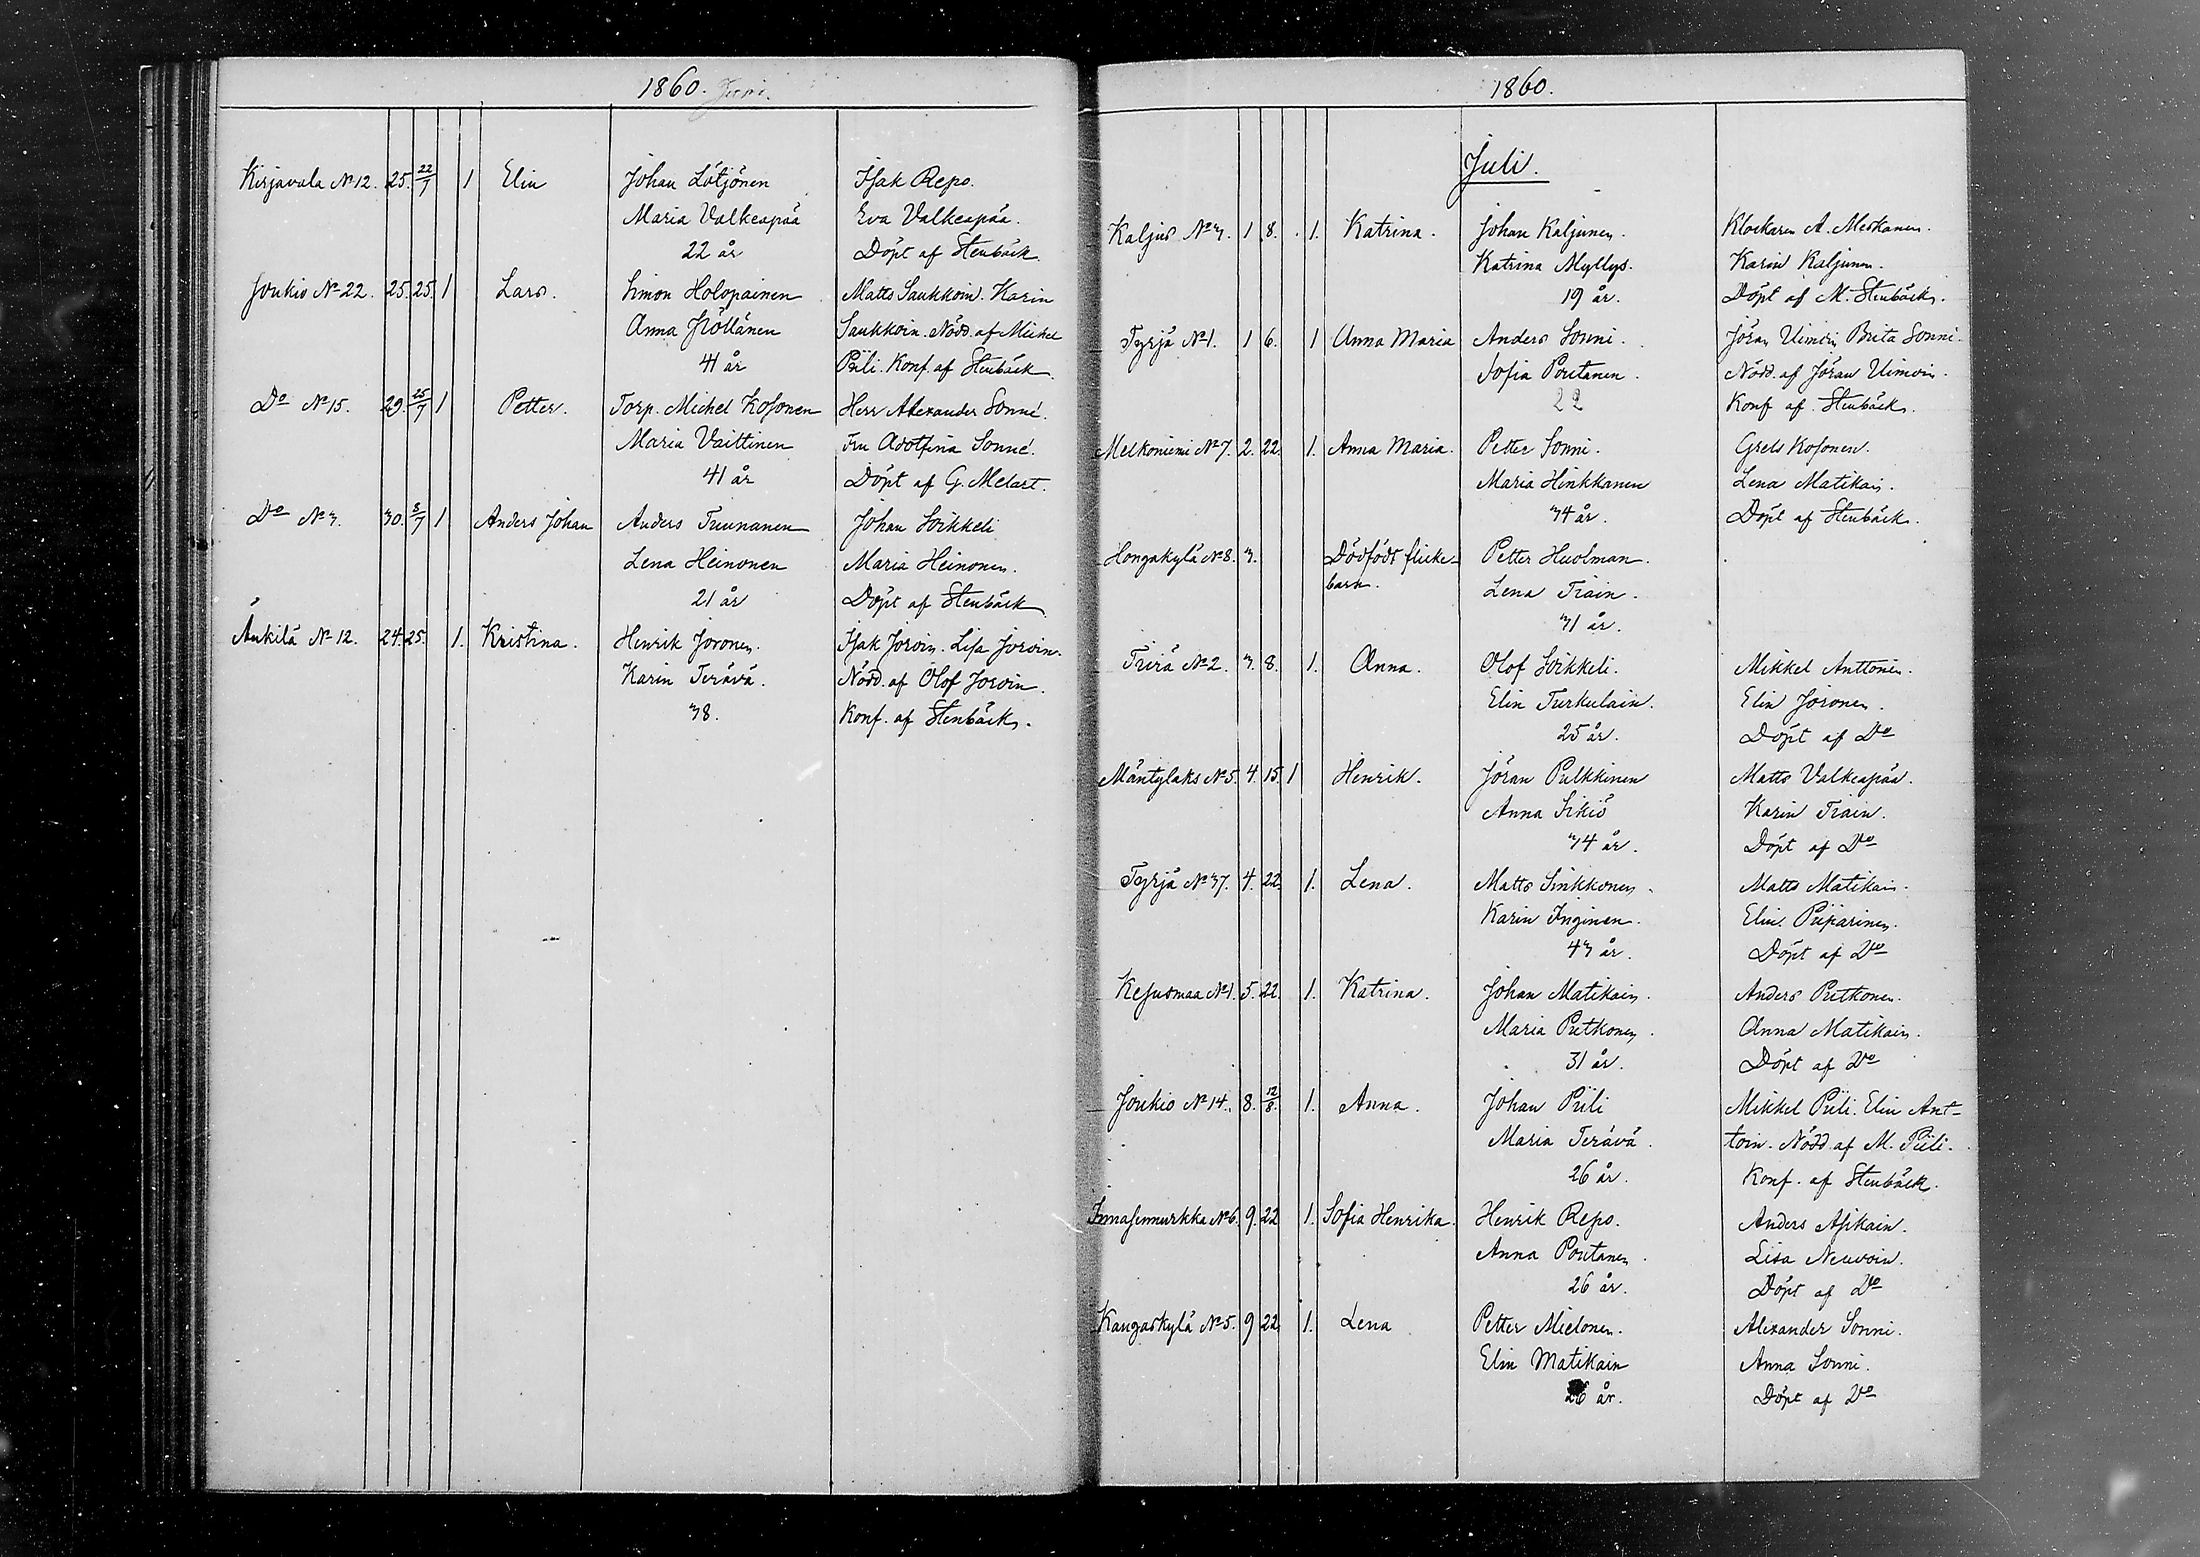 1860. Juni.
Kirjavala No 12. 25. 22/7 1 Elin Johan Lötjönen Isak Repo.
Maria Valkeapää Eva Valkeapää.
22 år Döpt af Stenbäck
Joukio No 22. 25. 25. 1 Lars. Simon Holopainen Matts Saukkoin. Karin
Anna Höllänen Saukkoin. Nödd. af Michel
41 år Piili. Konf. af Stenbäck.
Do No 15. 29. 25/7 1 Petter. Torp. Michel Kosonen Herr Alexander Sonné.
Maria Vaittinen Fru Adolfina Sonné.
41 år Döpt af G. Melart.
Do No 3. 30. 8/7 1 Anders Johan Anders Tuunanen Johan Soikkeli
Lena Heinonen Maria Heinonen.
21 år Döpt af Stenbäck
Änkilä No 12. 24. 25. 1. Kristina. Henrik Joronen. Isak Joroin. Lisa Joroin.
Karin Terävä. Nödd. af Olof Joroin.
38. Konf. af Stenbäck.
1860.
Juli.
Kaljus No 3. 1 8. 1. Katrina. Johan Kaljunen. Klockaren A. Meskanen.
Katrina Myllys. Karin Kaljunen.
19 år. Döpt af M. Stenbäck.
Tyrjä No 1. 1 6. 1 Anna Maria Anders Sonni. Jöran Uimoin Brita Sonni.
Sofia Poutanen. Nödd. af Jöran Uimoin.
22 Konf af Stenbäck.
Melkoniemi No 7. 2. 22. 1. Anna Maria. Petter Sonni. Grels Kosonen.
Maria Hinkkanen Lena Matikain.
34 år. Döpt af Stenbäck.
Hongakylä No 8. 3. Dödfödt flicke- Petter Huolman.
barn. Lena Tiain.
31 år.
Tiviä No 2. 3. 8. 1. Anna. Olof Soikkeli. Mikkel Anttonen.
Elin Turkulain. Elin Joronen.
25 år. Döpt af Do
Mäntylaks No 5. 4. 15. 1 Henrik. Jöran Pulkkinen Matts Valkeapää.
Anna Sikiö Karin Tiain.
34 år. Döpt af Do
Tyrjä No 37. 4. 22. 1. Lena. Matts Sinkkonen. Matts Matikain.
Karin Inginen. Elin. Piiparinen.
43 år. Döpt af Do
Kesusmaa No 1. 5. 22. 1. Katrina. Johan Matikain. Anders Putkonen.
Maria Putkonen. Anna Matikain.
31 år. Döpt af Do
Joukio No 14. 8. 12/8. 1. Anna. Johan Piili Mikkel Piili. Elin Ant-
Maria Terävä. toin. Nödd. af M. Piili.
26 år. Konf. af Stenbäck.
Innasenmurkka No 6. 9. 22 1. Sofia Henrika. Henrik Repo. Anders Asikain.
Anna Poutanen. Lisa Neuvoin.
26 år. Döpt af Do
Kangaskylä No 5. 9 22 1. Lena Petter Mielonen. Alexander Sonni.
Elin Matikain Anna Sonni.
26 år. Döpt af Do